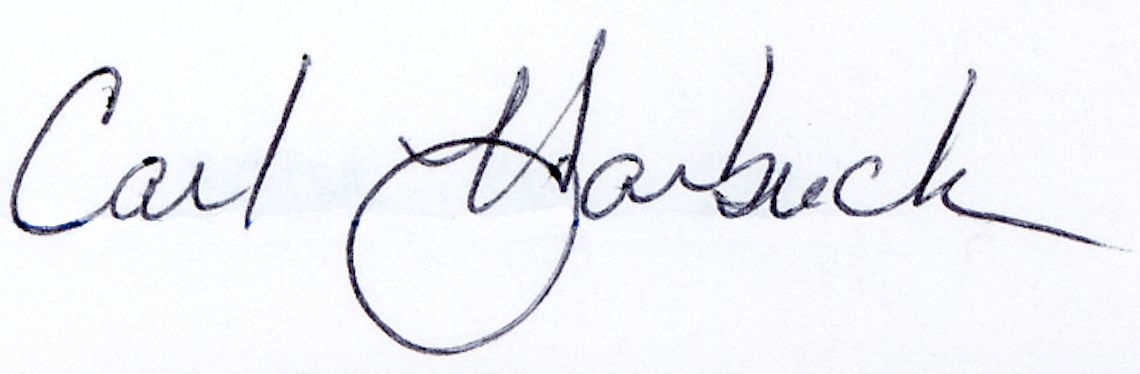 Carl Harbuck